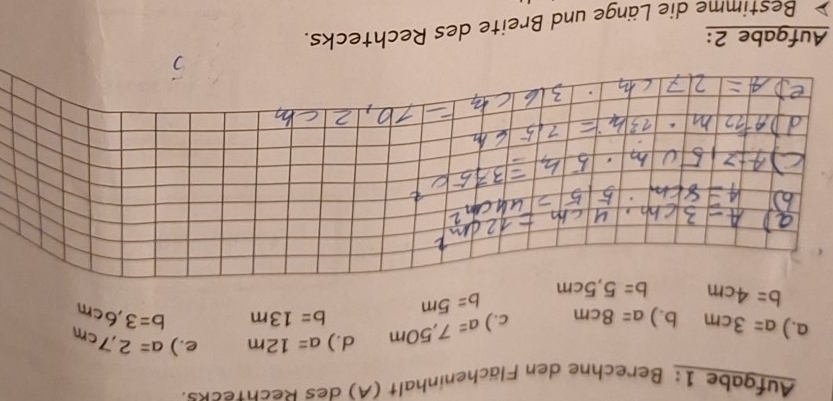 Aufgabe 1: Berechne den Flächeninhalt (A) des Rechtecks.
a.) a= 3cm b.) a= 8cm c.) a= 7,50m d.) a= 12m e.) a= 2,7cm
b= 4cm b= 5,5cm b= 5m b= 13m b=3,6cm
a) A = 3cm · 4cm = 12cm²
b) A = 8cm · 5,5 = 44cm²
c) A = 7,50m · 5m = 37,5
d) A = 12m · 13m =
e) A = 2,7cm · 3,6cm = 10,2cm
Aufgabe 2:
Bestimme die Länge und Breite des Rechtecks.